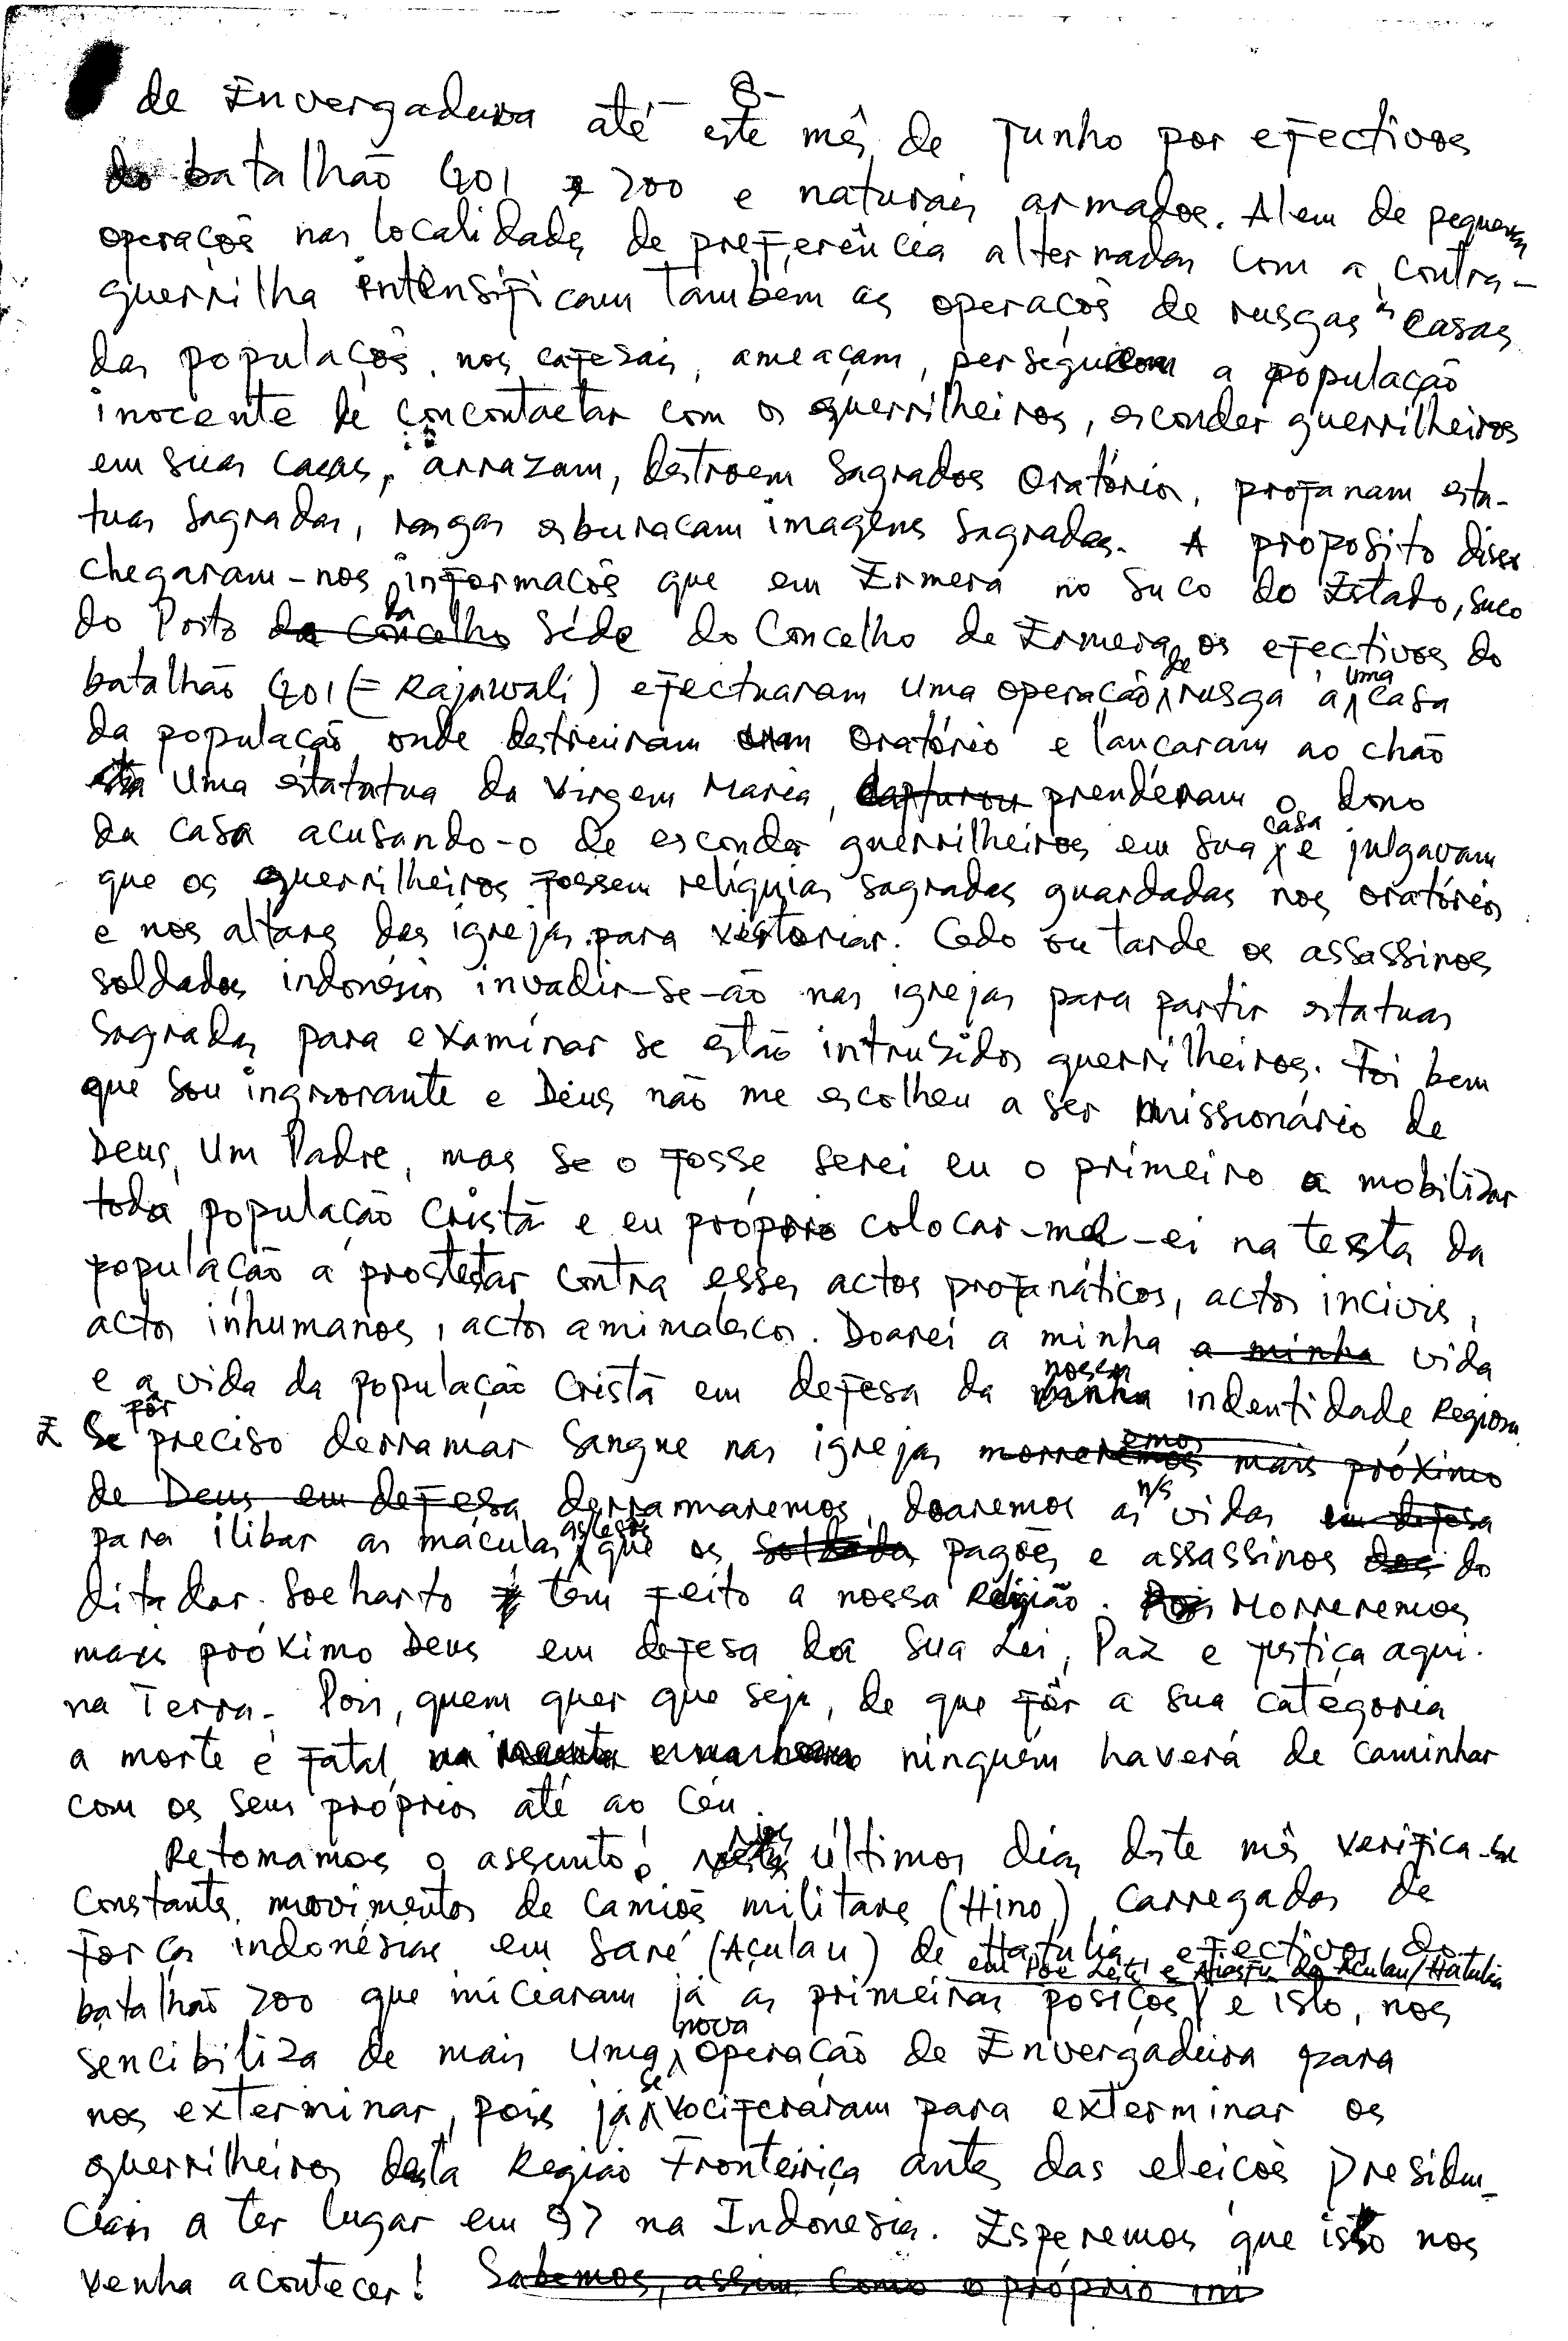 -8-
de Envergadura até este mês de Junho por efectivos
do batalhão 401 e 700 e naturais armados. Alem de pequenas
operaçõs nas localidades de preferência alternadas com a contra-
guerrilha intensificam também as operaçõs de rusgas às casas
das populaçõs, nos cafesais, ameaçam, perseguem a população
inocente de concontactar com os guerrilheiros, esconder guerrilheiros
em suas casas, arrazam, destroem sagrados oratórios, profanam esta-
tuas sagradas, rasgas esburacam imagens sagradas. A proposito disso
chegaram-nos informacõs que em Ermera no suco do Estado, suco
do Posto da Concelho da Séde do Concelho de Ermera, os efectivos do
batalhão 401 (= Rajawali) efectuaram uma operação de rusga á uma casa
da população onde destruiram um oratório e lançaram ao chão
uma estatatua da Virgem Maria, capturou prenderam o dono
da casa acusando-o de esconder guerrilheiros em sua casa e julgavam
que os guerrilheiros fossem relíquias sagradas guardadas nos oratórios
e nos altares das igrejas para vistoriar. Cedo ou tarde os assassinos
soldados indonésios invadir-se-ão nas igrejas para partir estatuas
sagradas para examinar se estão intrusidos guerrilheiros. Foi bem
que sou ingnorante e Deus não me escolheu a ser missionário de
Deus, Um Padre, mas se o fosse serei eu o primeiro a mobilizar
toda população Cristã e eu próprio colocar-me-ei na testa da
população a prostestar contra esses actos profanáticos, actos incivis,
actos inhumanos, actos amimalescos. Doarei a minha a minha vida
e a vida da população Cristã em defesa da minha nossa indentidade Regiosa
E Se fôr preciso derramar sangue nas igrejas morreremos mais próximo
de Deus em defesa derramaremos, doaremos as n/s vidas em defesa
para ilibar as máculas, as lesõs que os soldados pagões e assassinos dos do
ditador Soeharto tem feito a nossa Religião. Pois Morreremos
mais próximo Deus em defesa da Sua Lei, Paz e justiça aqui
na Terra. Pois, quem quer que seja, de que fôr a sua categoria
a morte é fatal, ninguém haverá de caminhar
com os seus próprios até ao Céu.
Retomamos o assunto: nestes nos últimos dias deste mês verifica-se
constantes movimentos de camiõs militares (Hino) carregados de
forças indonésias em Saré (Açulau) de Hatulia, efectivos do
batalhão 700 que iniciaram já as primeiras posiçõs em Poe Lete e Airasfu de Açulau/Hatulia e isto, nos
sencibiliza de mais uma nova operação de Envergadura para
nos exterminar, pois já se vociferáram para exterminar os
guerrilheiros desta Região Fronteiriça antes das eleicões Presiden-
ciais a ter lugar em 97 na Indonésia. Esperemos que isto nos
venha acontecer! Sabemos, assim como o próprio ini